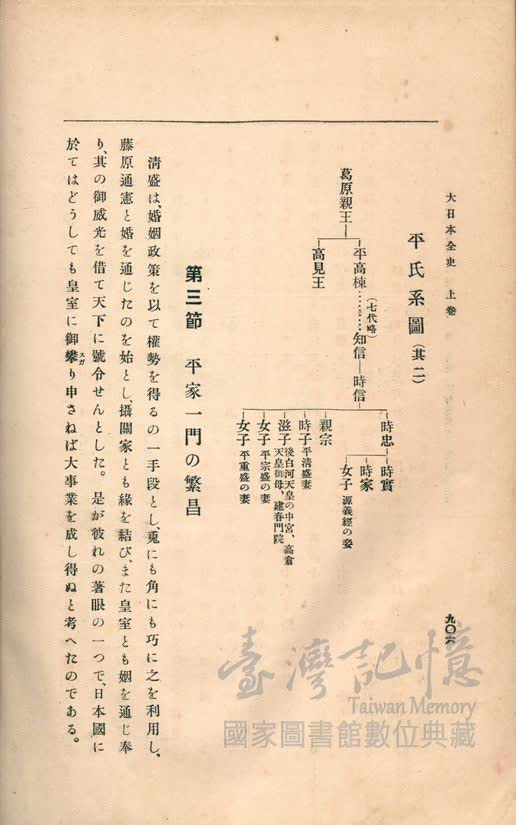 大日本全史 上卷
九〇六
平氏系圖(其二)
葛原親王
平高棟……(七代略)……知信―時信
高見王
時忠
時實
時家
女子 源義經の妾
親宗
時子 平清盛妻
滋子 後白河天皇の中宮、高倉
天皇御母、建春門院
女子 平宗盛の妻
女子 平重盛の妻
第三節 平家一門の繁昌
清盛は、婚姻政策を以て權勢を得るの一手段とし、兎にも角にも巧に之を利用し、
藤原通憲と婚を通じたのを始とし、攝關家とも緣を結び、また皇室とも姻を通じ奉
り、其の御威光を借て天下に號令せんとした。是が彼れの著眼の一つで、日本國に
於てはどうしても皇室に御攀スガり申さねば大事業を成し得ぬと考へたのである。
臺灣記憶
Taiwan Memory
國家圖書館數位典藏